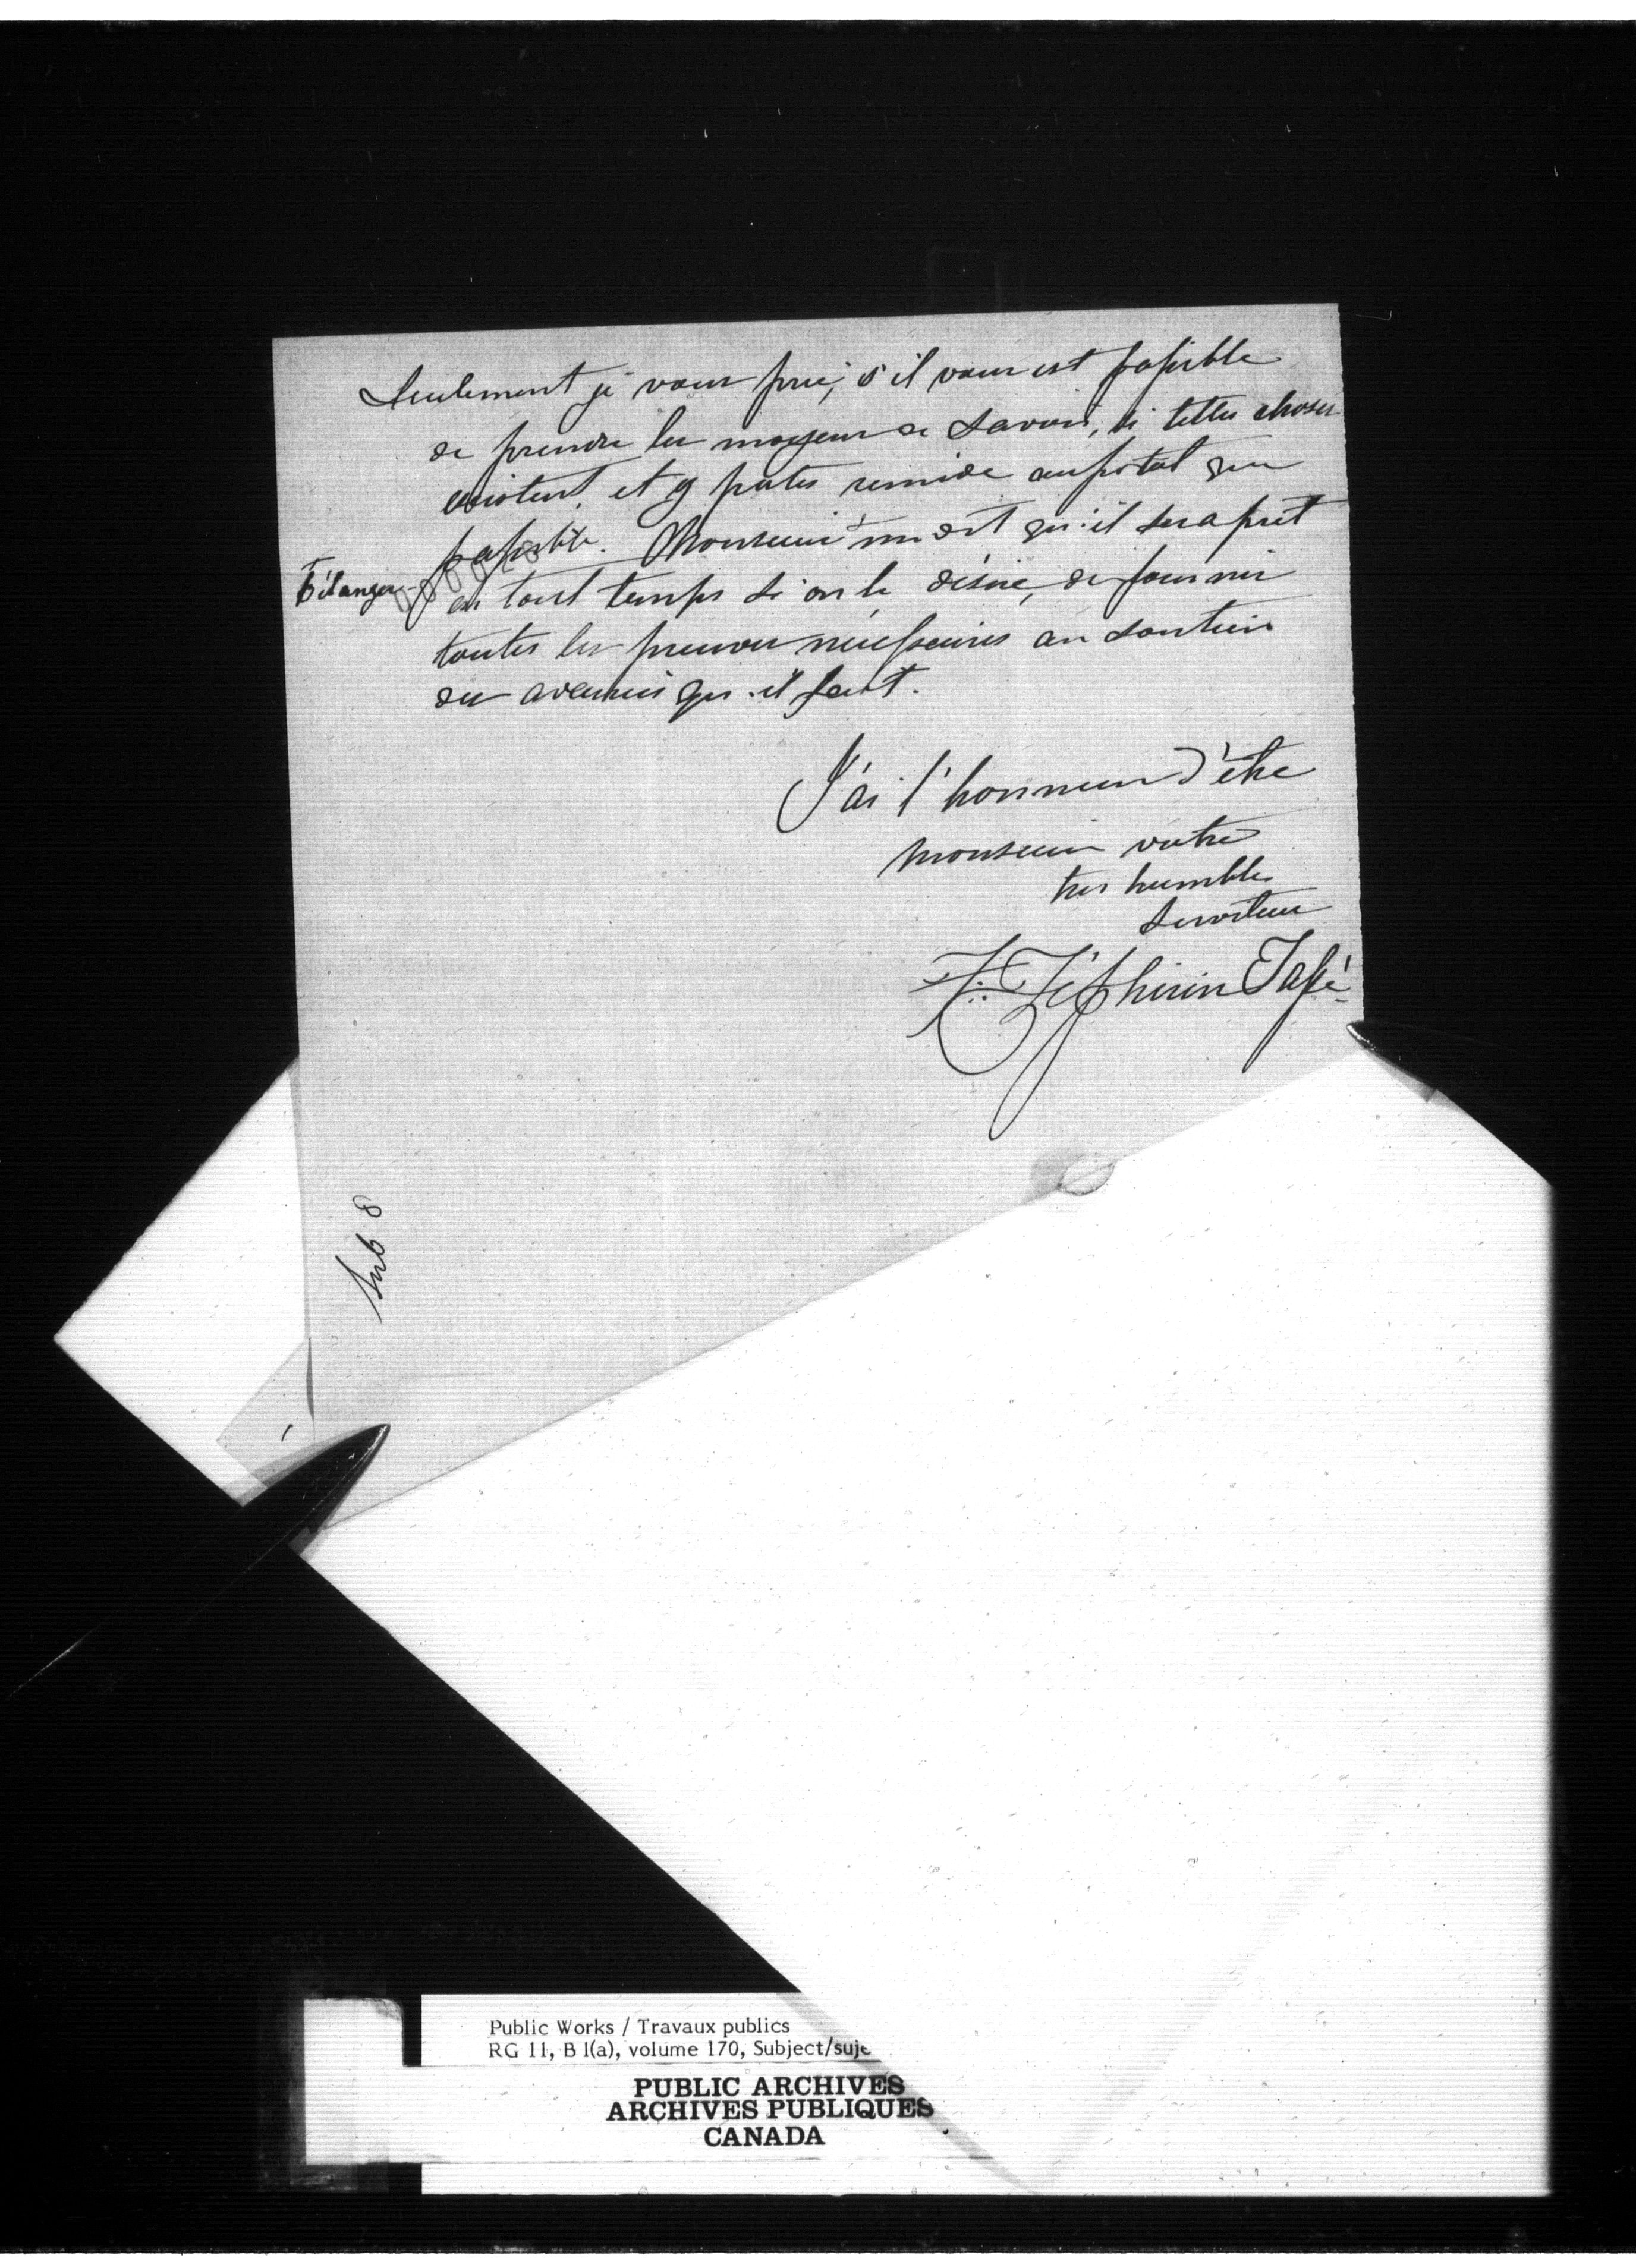 Seulement je vous prie, s'il vous est possible
de prendre les moyens de savoir, si telles choses
existent, et y portes remide aussitot que
possible. Monsieur m dit qu'il sera pret
Bélanger
en tout temps si on le désire, de fournir
toutes les preuves nécessaires au soutien
des avancés qu'il fait.
J'ai l'honneur d'être
monsieur votre
tres humble
serviteur
F: Zéphirin Tassé
Sub 8
Public Works / Travaux publics
RG 11, B 1(a), volume 170, Subject/suje
PUBLIC ARCHIVES
ARCHIVES PUBLIQUES
CANADA